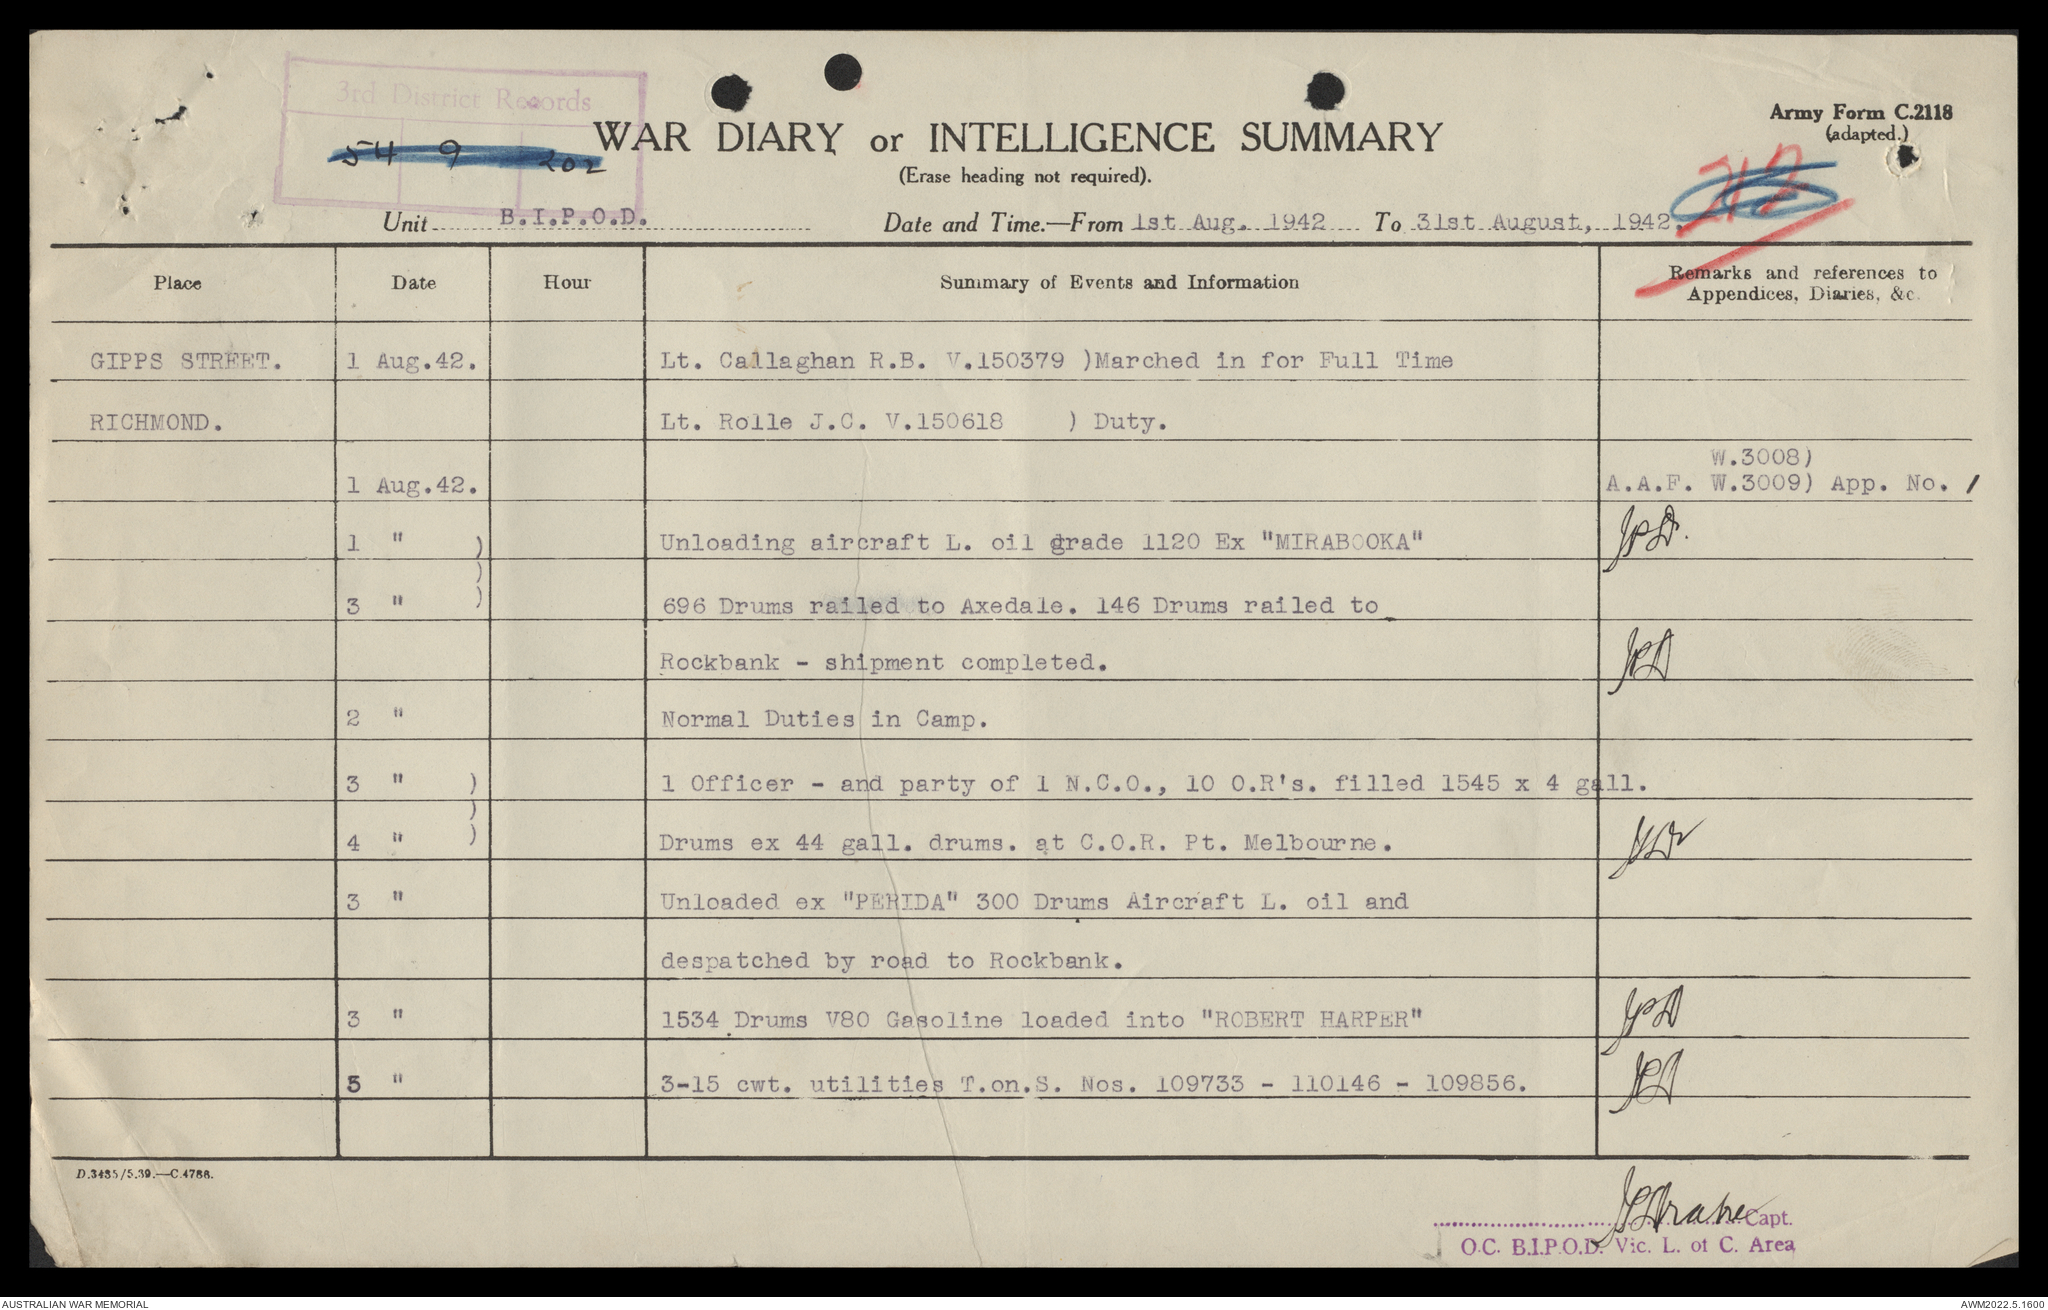 3rd District Records
54 9 202
WAR DIARY or INTELLIGENCE SUMMARY
(Erase heading not required).
Army Form C.2118
(adapted.)
212
Unit B.I.P.O.D. Date and Time.—From 1st Aug. 1942 To 31st August, 1942.
Place Date Hour Summary of Events and Information Remarks and references to
Appendices, Diaries, &c.
GIPPS STREET. 1 Aug.42. Lt. Callaghan R.B. V.150379 )Marched in for Full Time
RICHMOND. Lt. Rolle J.C. V.150618 ) Duty.
W.3008)
1 Aug.42. A.A.F. W.3009) App. No. 1
1 " ) Unloading aircraft L. oil grade 1120 Ex "MIRABOOKA" JPD.
)
3 " ) 696 Drums railed to Axedale. 146 Drums railed to
Rockbank - shipment completed. JPD
2 " Normal Duties in Camp.
3 " ) 1 Officer - and party of 1 N.C.O., 10 O.R's. filled 1545 x 4 gall.
)
4 " ) Drums ex 44 gall. drums. at C.O.R. Pt. Melbourne. JPD
3 " Unloaded ex "PERIDA" 300 Drums Aircraft L. oil and
despatched by road to Rockbank.
3 " 1534 Drums V80 Gasoline loaded into "ROBERT HARPER" JPD
5 " 3-15 cwt. utilities T.on.S. Nos. 109733 - 110146 - 109856. JPD
D.3435/5.39.—C.4788.
JPDrake Capt.
O.C. B.I.P.O.D. Vic. L. of C. Area
AUSTRALIAN WAR MEMORIAL
AWM2022.5.1600